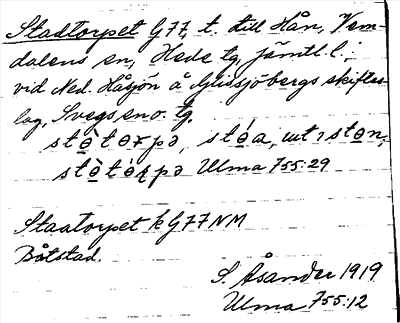 Stadtorpet G77, t. till Hån, Vem-
dalens sn, Hede tg, Jämtl. l.;
vid Ned. Håsjön å Glissjöbergs skiftes-
lag, Svegs sn o. tg.
stө̀tөrpə, stө́a, ut ı stөn,
stө̀tөrpə Ulma 755:29
Staatorpet k G77 NM
Båtstad.
S. Åsander 1919
Ulma 755:12